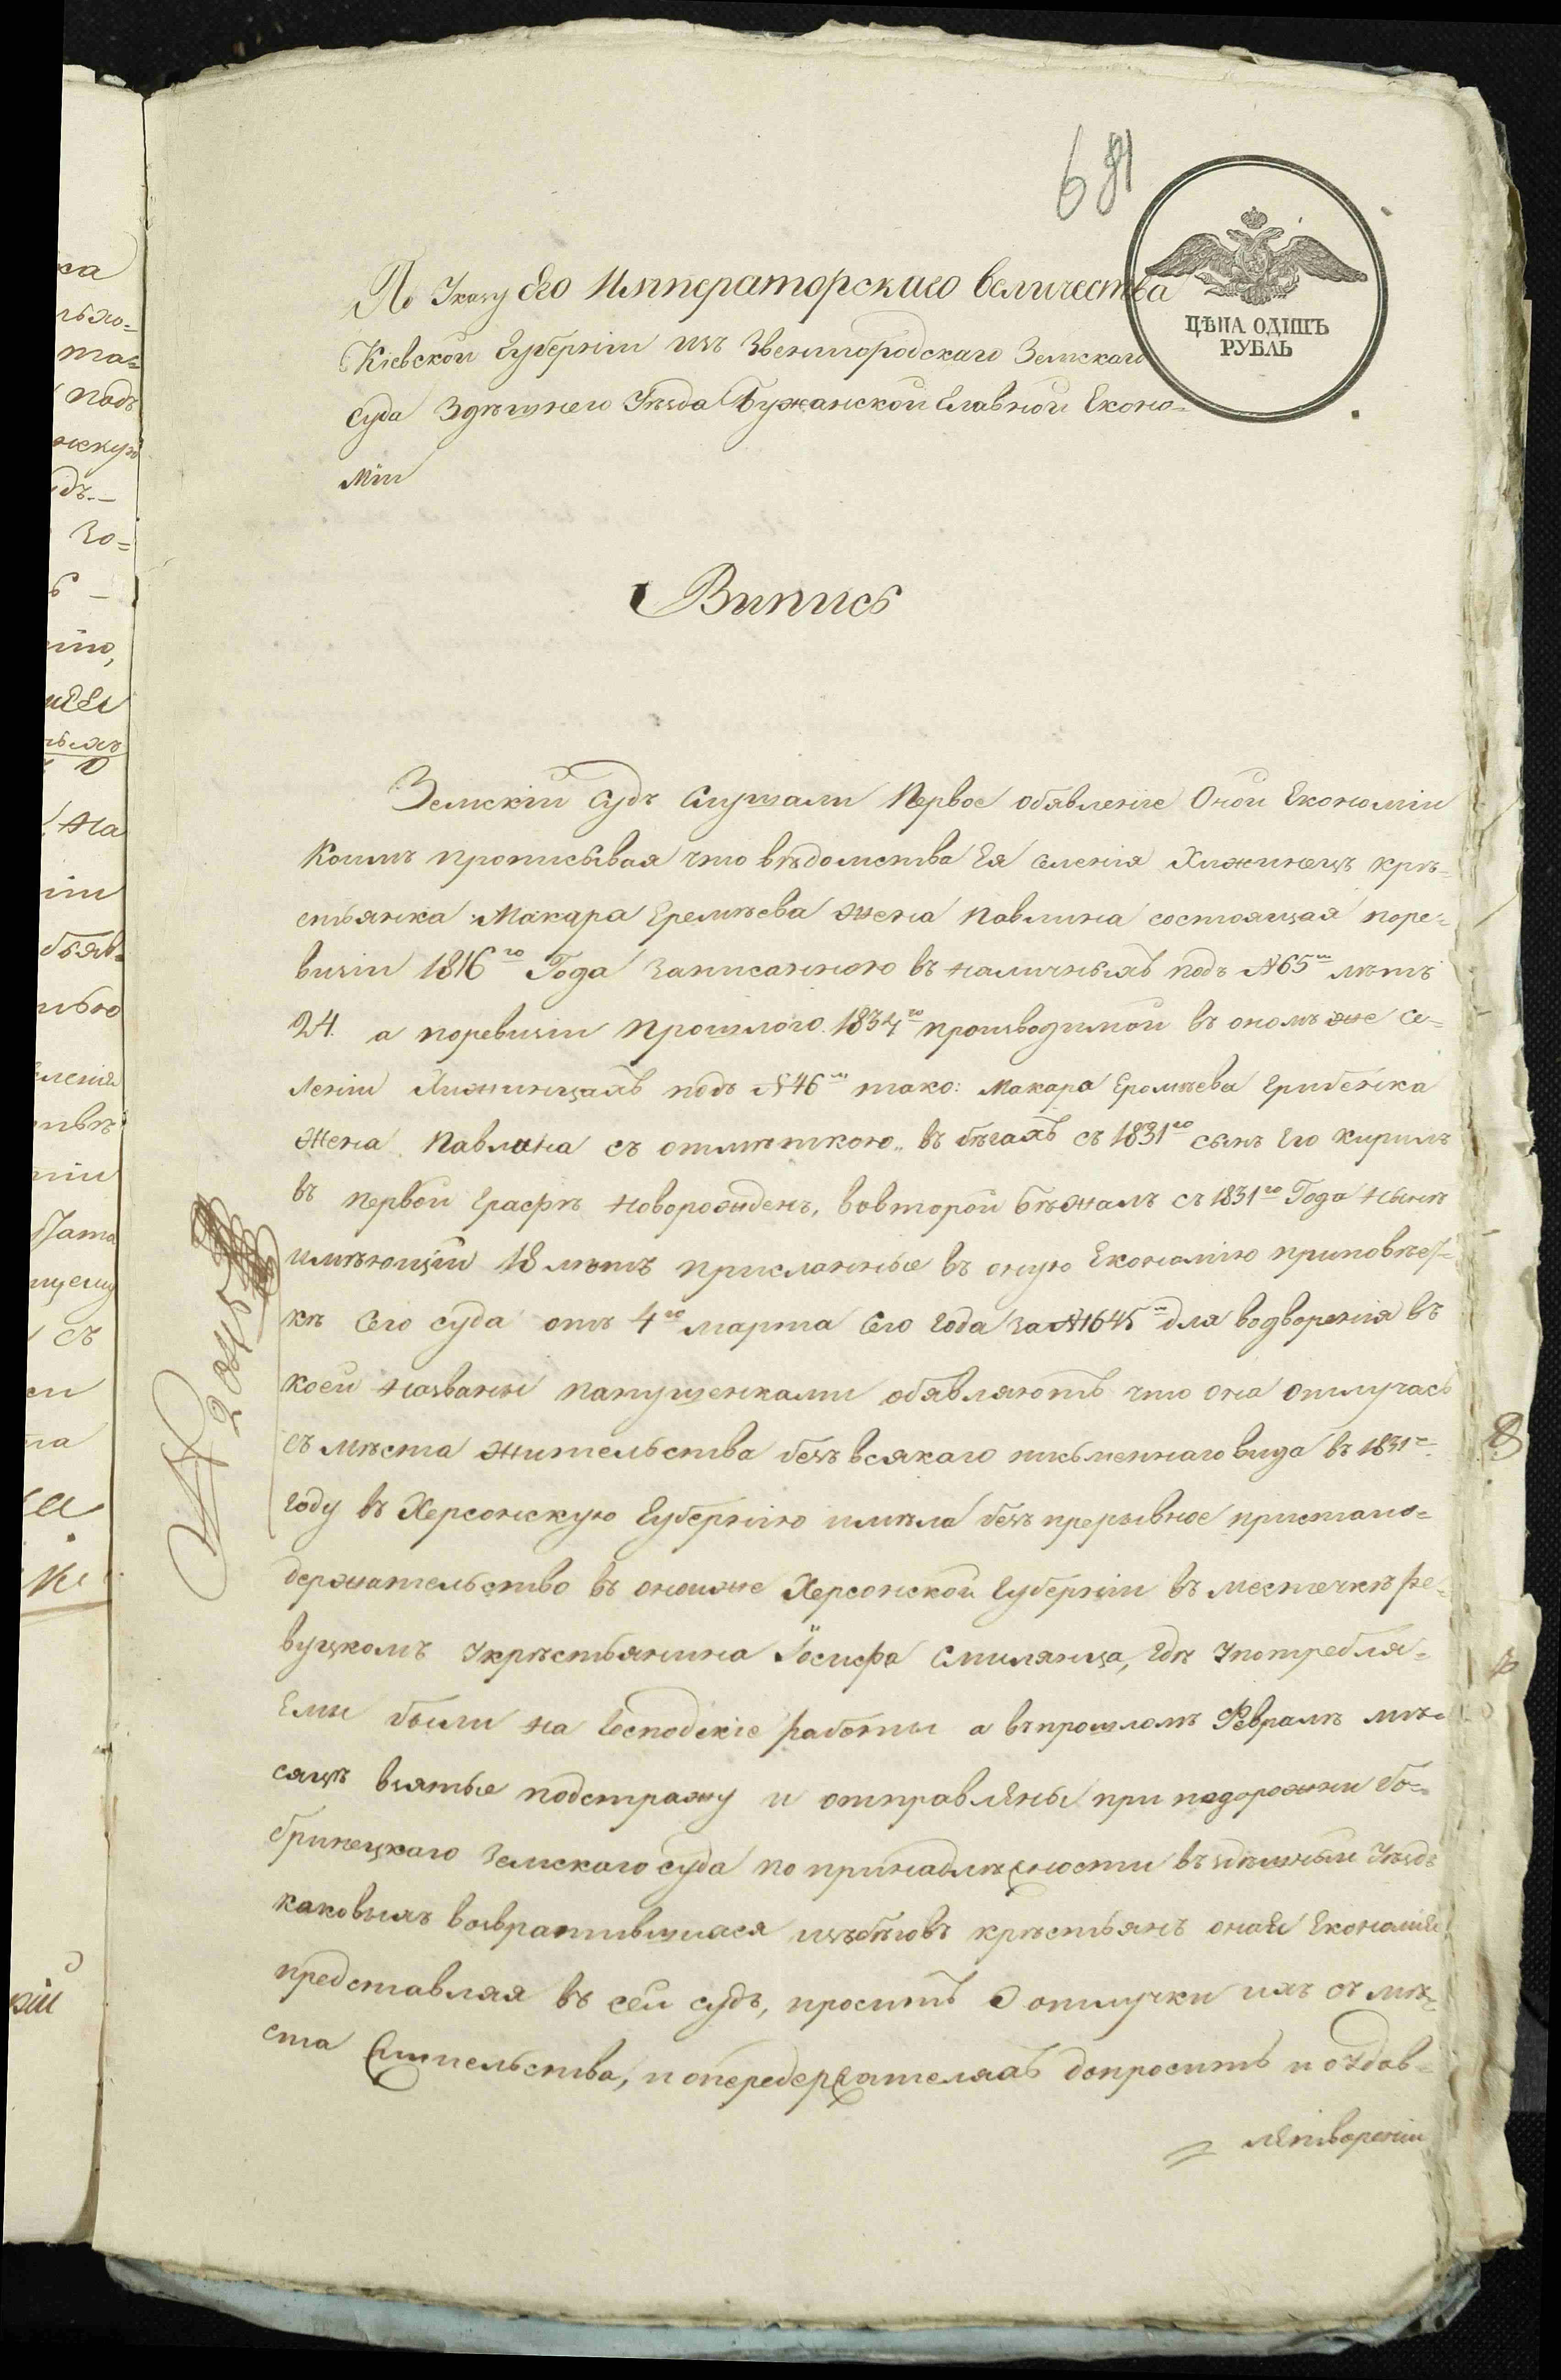 681
ЦѢНА ОДИНЪ
РУБЛЬ
По Указу Его Императорскаго Величества
Кіевской Губерніи изъ Звенигородскаго Земскаго
Суда Здѣшнего Уѣзда Бужанской Главной Еконо=
міи
Випись
Земскій Судъ Слушали Первое обявленіе Оной Економіи
Коимъ прописывая что вѣдомства Ея Селенія Хижинецъ крѣ=
стьянка Макара Еремѣева жена Павлина состоящая поре=
визіи 1816го Года записанною въ наличныхъ подъ №65м лѣтъ
24. а поревизіи прошлого 1834го производимой въ ономъ же се=
леніи Хижинцахъ подъ №46м тако: Макара Еромѣева Грибенка
жена Павлина съ отмѣткою „ въ бѣгахъ съ 1831го сынъ Его Кирилъ
въ первой Графѣ новорожденъ, вовторой бѣжалъ съ 1831го Года Нынѣ
имѣющій 18 лѣтъ присланные въ оную Економію приповѣр=
кѣ Сего суда отъ 4го марта Сего Года за №1645м для водворенія въ
коей названы Папушенками обявляютъ что она отлучась
съ мѣста жительства безъ всякаго письменнаго вида въ 1831м
году въ Херсонскую Губернію имѣла безъ прерывное пристано=
держательство въ оной же Херсонской Губерніи въ местечкѣ Ре=
вуцкомъ Укрѣстьянина Іосифа Смилянца, гдѣ Употребля=
Емы были на Господскіе работы а въ прошломъ Февралѣ мѣ=
сяцѣ взятые подстражу и отправлены при подорожни Бо=
бринецкаго Земскаго суда по принадлежности въ здѣшный Уѣздъ
каковыхъ возвратившихся изъ бѣговъ крѣстьянъ оная Економія
представляя въ сей судъ, проситъ О отлучки ихъ съ мѣ=
ста Жительства, и опередержателяхъ допросить и оудов=
летвореніи